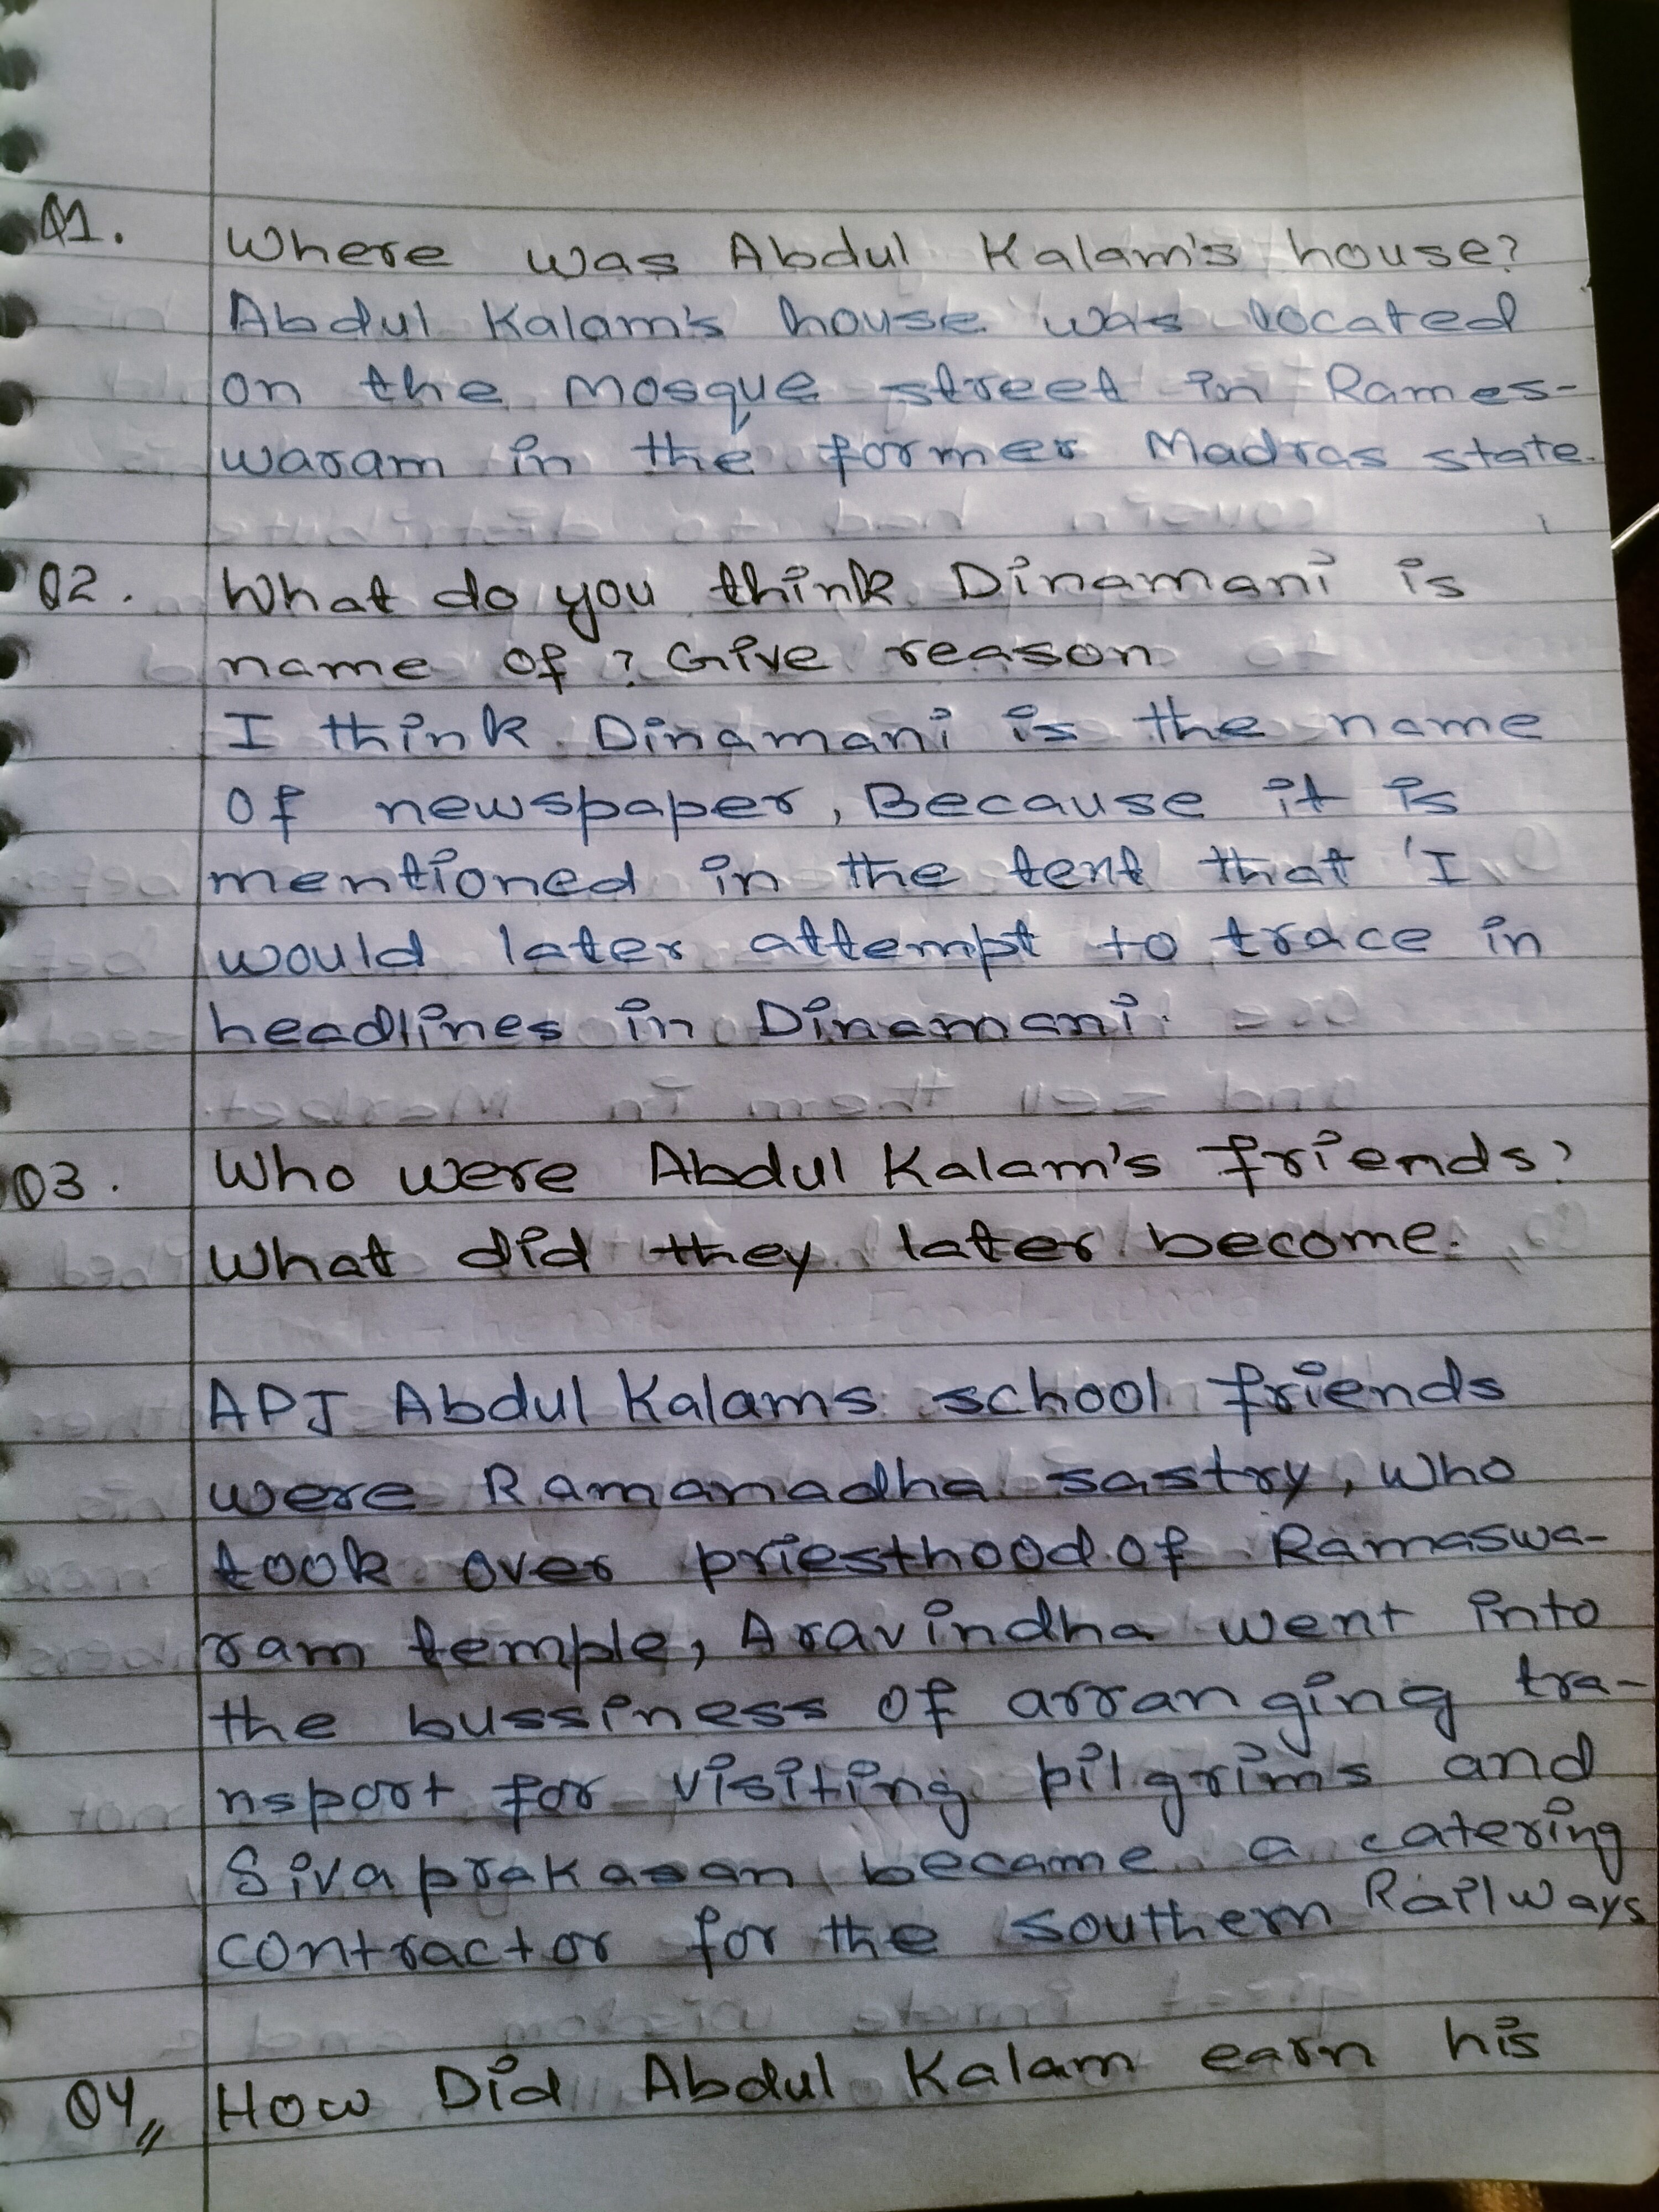 Q1. Where was Abdul Kalam's house?
Abdul Kalam's house was located
on the Mosque street in Rames-
waram in the former Madras state.
Q2. What do you think Dinamani is
name of? Give reason
I think Dinamani is the name
of newspaper, Because it is
mentioned in the tent that 'I
would later attempt to trace in
headlines in Dinamani.
Q3. Who were Abdul Kalam's friends?
What did they later become.
APJ Abdul Kalams school friends
were Ramanadha sastry, who
took over priesthood of Ramaswa-
ram temple, Aravindha went into
the bussiness of arranging tra-
nsport for visiting pilgrims and
Sivaprakasan became a catering
contractor for the southern Railways
Q4,, How Did Abdul Kalam earn his